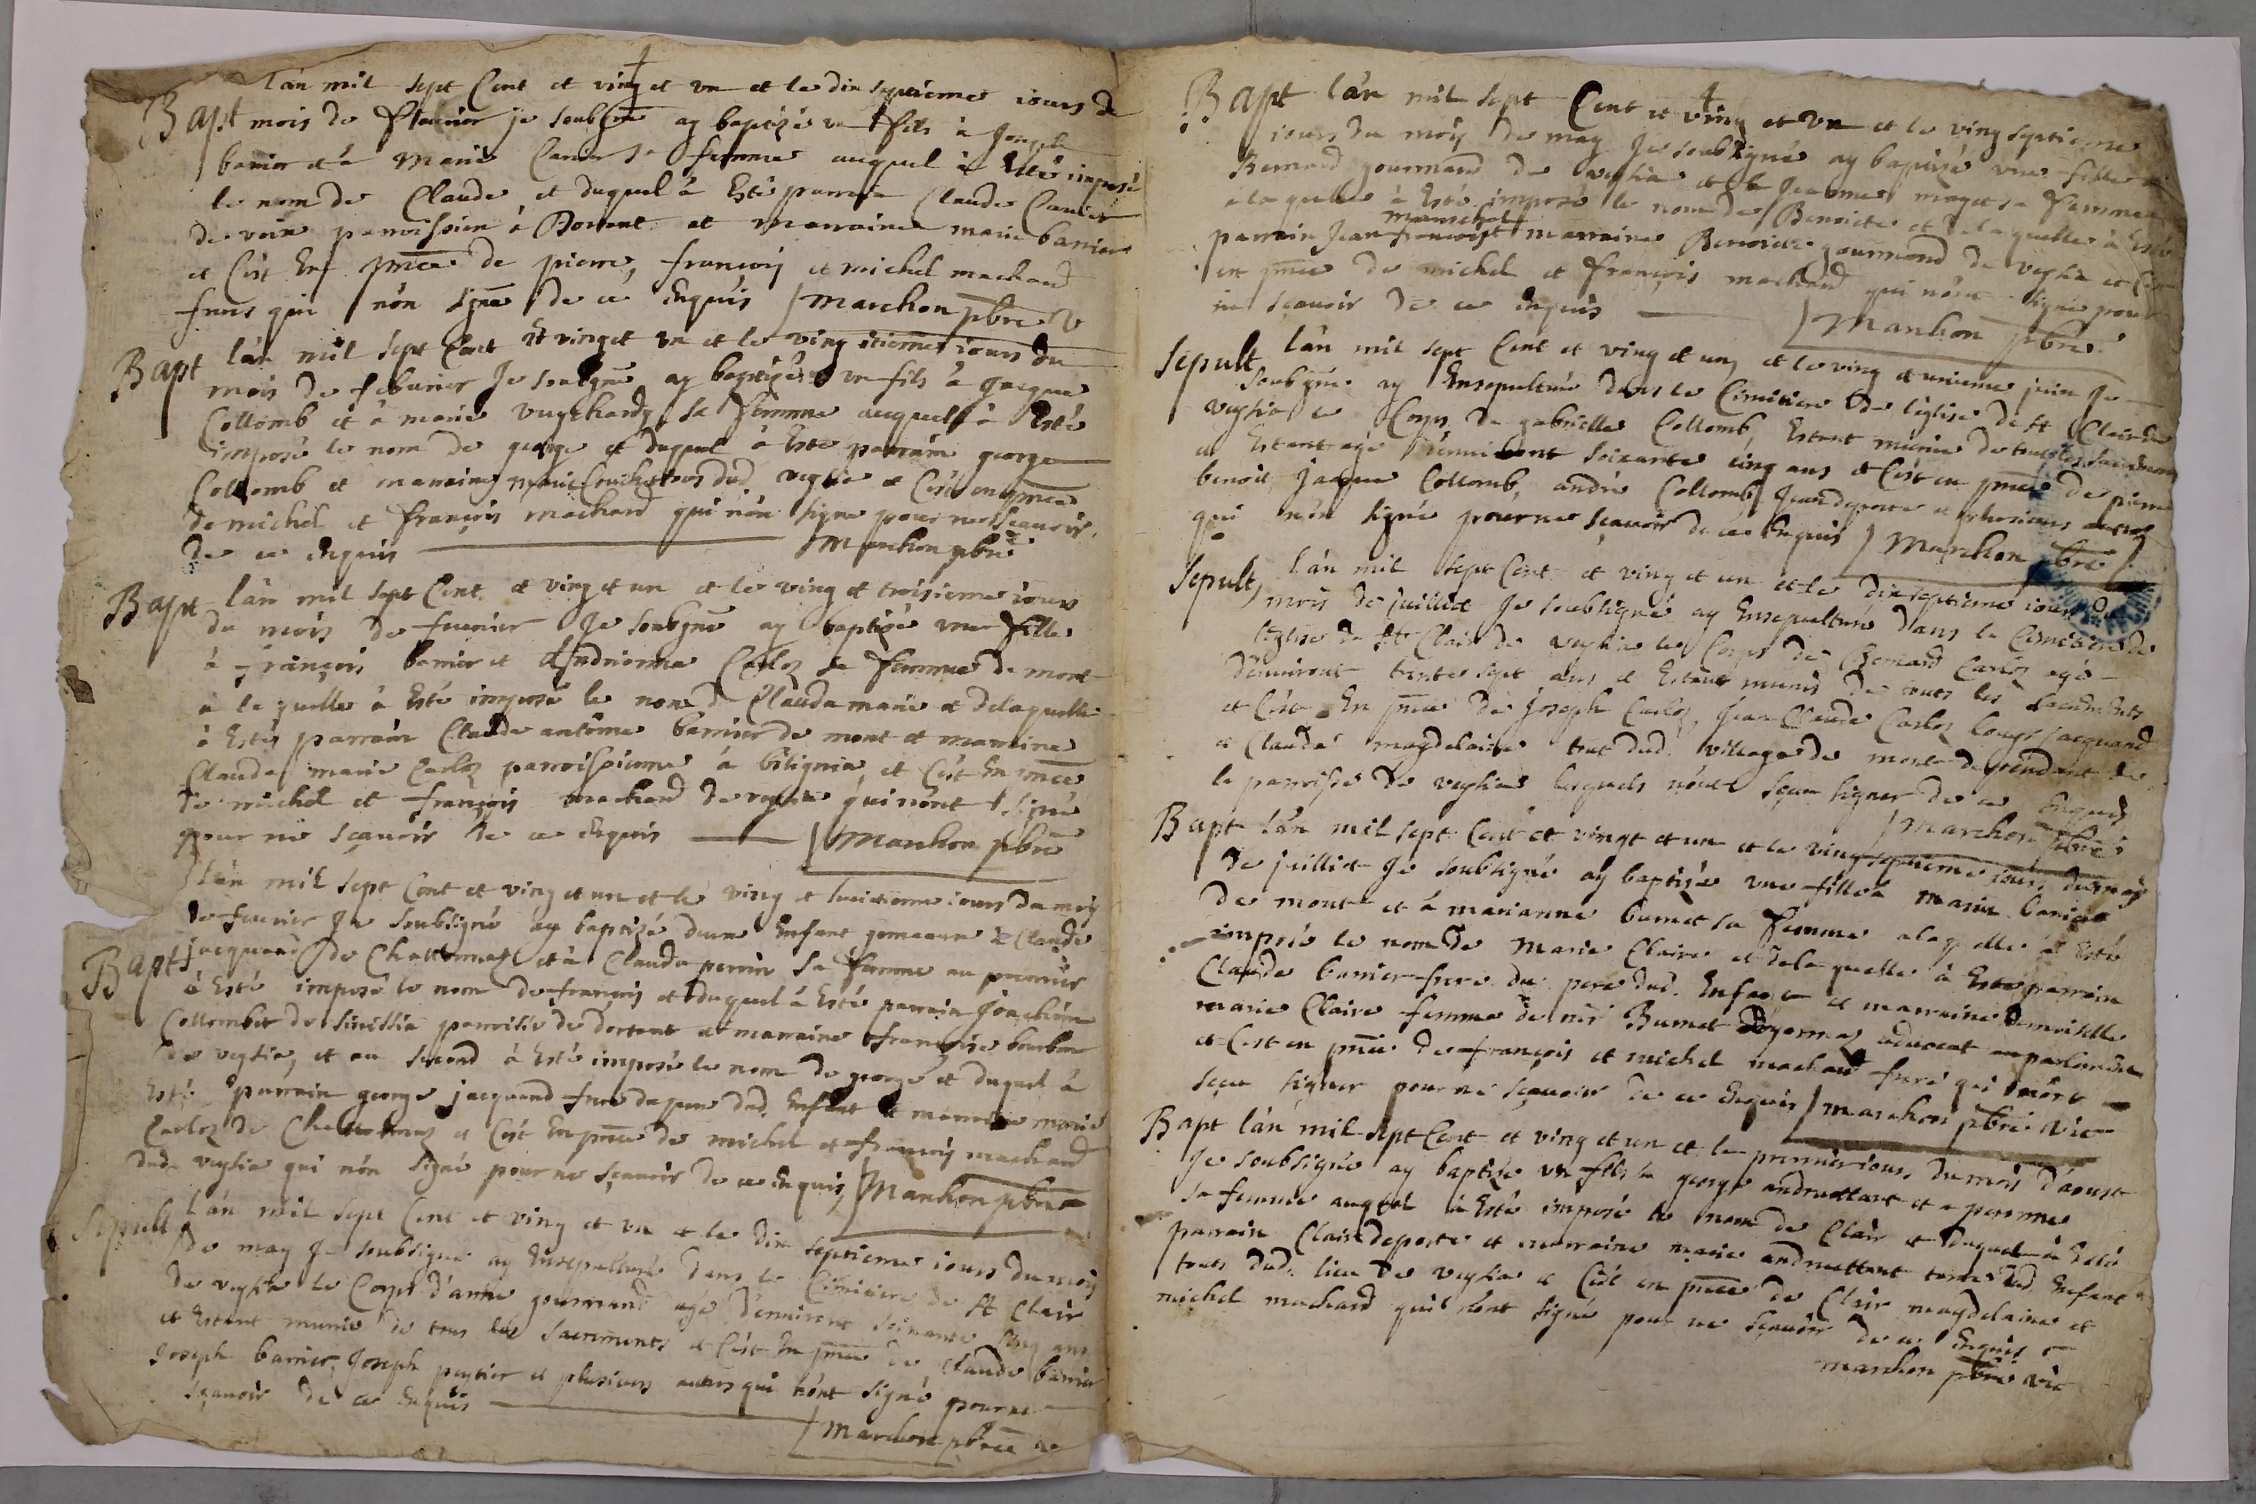 l'an mil sept Cent et ving et un et le dix septieme iours de
Bapt mois de feurier je soubsigné ay baptizé un fils à Joseph
barrier et à Marie Carrier sa femme auquel à Esté imposé
le nom de Claude et duquel à Esté parrain Claude Carrier
de voin parroissien à Dortant et marraine marie barrier
et C'est En pnce de pierre, françois et michel machard
freres qui n'on signé de ce Enquis Marchon pbre V
Bapt l'an mil sept Cent et ving et un et le ving itiemes iours du
mois de feburier Je soubsigné ay baptizé un fils à Jacque
Collomb et à marie sa femme auquel à Esté
imposé le nom de george et duquel à Esté parrain george
Collomb et marraine marie dud veglia et C'est en pnce
de michel et françois machard qui n'on signe pour ne sçauoir
de ce Enquis Marchon pbre
Bapt l'an mil sept Cent et ving et un et le ving et troisieme iours
du mois de feurier Je soubsigné ay baptizé une fille
à françois barrier et Andrienne Carloz sa femme de mont
à la quelle à Esté imposé le nom de Claudamarie et de laquelle
à Estés parrain Claude antoine barrier de mont et marraine
Claudа marie Carloz parroissienne à bilignia, et C'est En pnce
de michel et françois machard de veglia qui n'ont signé
pour ne sçauoir de ce Enquis Marchon pbre
l'an mil sept Cent et ving et un et le ving et huitieme iours du mois
de feurier Je soubsigné ay baptizé deux Enfant gemeaux à Claude
Bapt jacquand de Chattonnaz et à Claudа perrin sa femme au premier
à Esté imposé le nom de françois et duquel à Esté parrain Joachim
Collombet de Sinissia parroisse de dortant et marraine françoise bourbon
de veglia, et au second à Esté imposé le nom de george et duquel à
Esté parrain george jacquand frere du pere dud. Enfant et marraine marie
Carloz de Chattonnaz et C'est En pnce de michel et françois machard
dud. veglia qui n'on signé pour ne sçauoir de ce Enquis Marchon pbre
Sepult l'an mil sept Cent et ving et un et le dix septieme iours du mois
de may Je soubsigné ay Ensepulturé dans le Cimitiere de st Clair
de veglia le Corps d'anne gourmand agé d'enuiront soixante Cinq ans
et Estant munie de tous les sacrements et C'est En pnce de Claude barrier
Joseph barrier, Joseph peytier et plusieurs autres qui n'ont signé pour ne
sçauoir de ce Enquis Marchon pbre
Bapt l'an mil sept Cent et ving et un et le ving septieme
iours du mois de may Je soubsigné ay baptizé une fille à
Bernard gourmand de veglia et à Jeanne maget sa femme
à la quelle à Esté imposé le nom de Benoite et de la quelle à Esté
mareschal
parrain Jean françois marraine Benoite gourmand de veglia et C'est
en pnce de michel et françois machard qui n'ont signé pour
ne sçauoir de ce Enquis Marchon pbre
Sepult l'an mil sept Cent et ving et un et le ving et unieme juin Je
soubsigné ay Ensepulturé dans le Cimitiere de l'eglise de st Clair de
veglia le Corps de gabrielle Collomb, Estant munie de tous les sacrements
et Estant agé d'enuiront soixante cinq ans et C'est en pnce de pierre
benoit, Jacque Collomb, andré Collomb Jean deporte et plusieurs autres
qui n'on signé pour ne sçauoir de ce Enquis Marchon pbre
Sepult l'an mil sept Cent et ving et un et le dix septieme iours du
mois de juillet Je soubsigné ay Ensepulturé dans le Cimitiere de
l'eglise de st Clair de veglia le Corps de Bernard Carloz agé
d'enuiront trente sept ans et Estant munis de touts les sacrements
et C'est En pnce de Joseph Carloz, Jean Claude Carloz Louys jacquand
et Claude magdelaine tout dud. village de mont dependant de
la parroisse de veglia lesquels n'ont sçeu signer de ce Enquis
Marchon pbre
Bapt l'an mil sept Cent et vingt et un et le ving septieme iours du mois
de juillet Je soubsigné ay baptizé une fille à marin barrier
de mont et à marianne bumet sa femme à laquelle à Esté
imposé le nom de Marie Claire et de la quelle à Esté parrain
Claude barrier frere du pere dud. Enfant et marraine demoiselle
marie Claire femme de mr Bumet advocat au parlement
et C'est en pnce de françois et michel machard frere qui n'ont
sçeu signer pour ne sçauoir de ce Enquis Marchon pbre vic
Bapt l'an mil sept Cent et ving et un et le premier iours du mois d'aoust
Je soubsigné ay baptizé un fils à george andruettant et à peronne
sa femme auquel à Esté imposé le nom de Clair et duquel à Esté
parrain Clair deporte et marraine marie andruettant tante dud Enfant
touts dud. lieu de veglia et C'est en pnce de Clair magdelaine et
michel machard qui n'ont signé pour ne sçauoir de ce Enquis
Marchon pbre vic